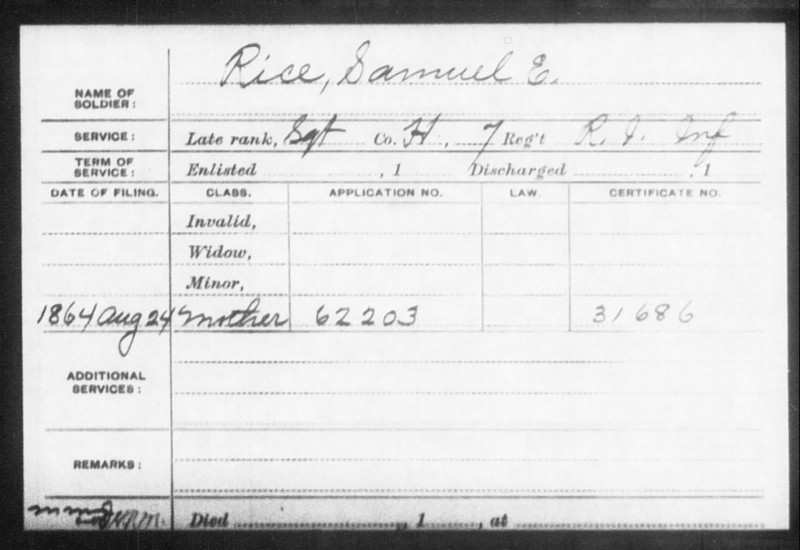 NAME OF SOLDIER: Rice, Samuel E.
SERVICE: Late rank, Sgt Co. H, 7 Reg't R. I. Inf
TERM OF SERVICE: Enlisted , 1 Discharged , 1
DATE OF FILING. CLASS. APPLICATION NO. LAW. CERTIFICATE NO.
Invalid,
Widow,
Minor,
1864 Aug 24 Mother 62203 31686
ADDITIONAL SERVICES:
REMARKS:
Died , 1 , at